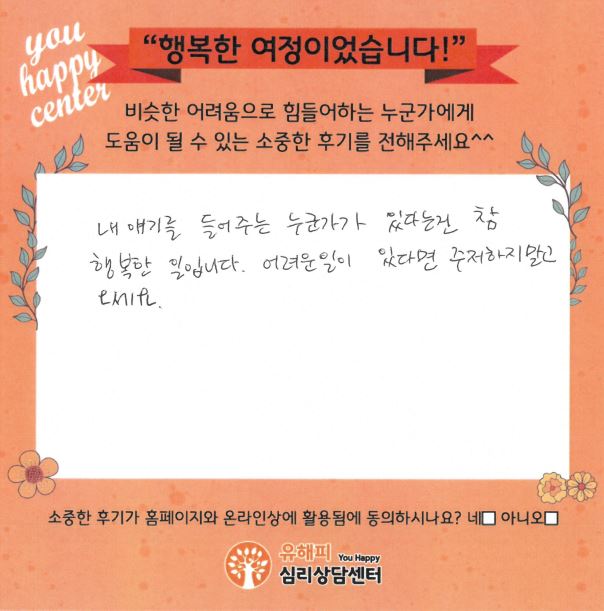 you
happy
center
“행복한 여정이었습니다!”
비슷한 어려움으로 힘들어하는 누군가에게
도움이 될 수 있는 소중한 후기를 전해주세요^^
내 얘기를 들어주는 누군가가 있다는건 참
행복한 일입니다. 어려운일이 있다면 주저하지말고
오세요.
소중한 후기가 홈페이지와 온라인상에 활용됨에 동의하시나요? 네□ 아니오□
유해피 You Happy
심리상담센터